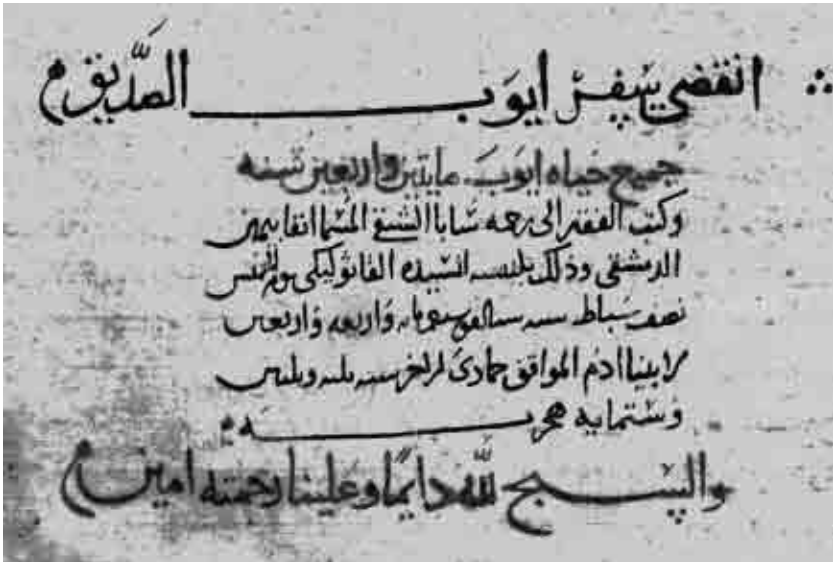 انقضى سفر ايوب الصديق
جميع حياه ايوب مايتين واربعين سنه
وكتب الفقير الى رحمه المسما انفا بيمين
الدمشقي وذلك السيده القاثوليكي يوم الخميس
نصف سباط سنه سته الف سبعمايه واربعه واربعين
لابينا ادم الموافق جمادى الاخر سنه ثلثه وثلثين
وستمايه هجريه
والسبح لله دايما وعلينا رحمته امين